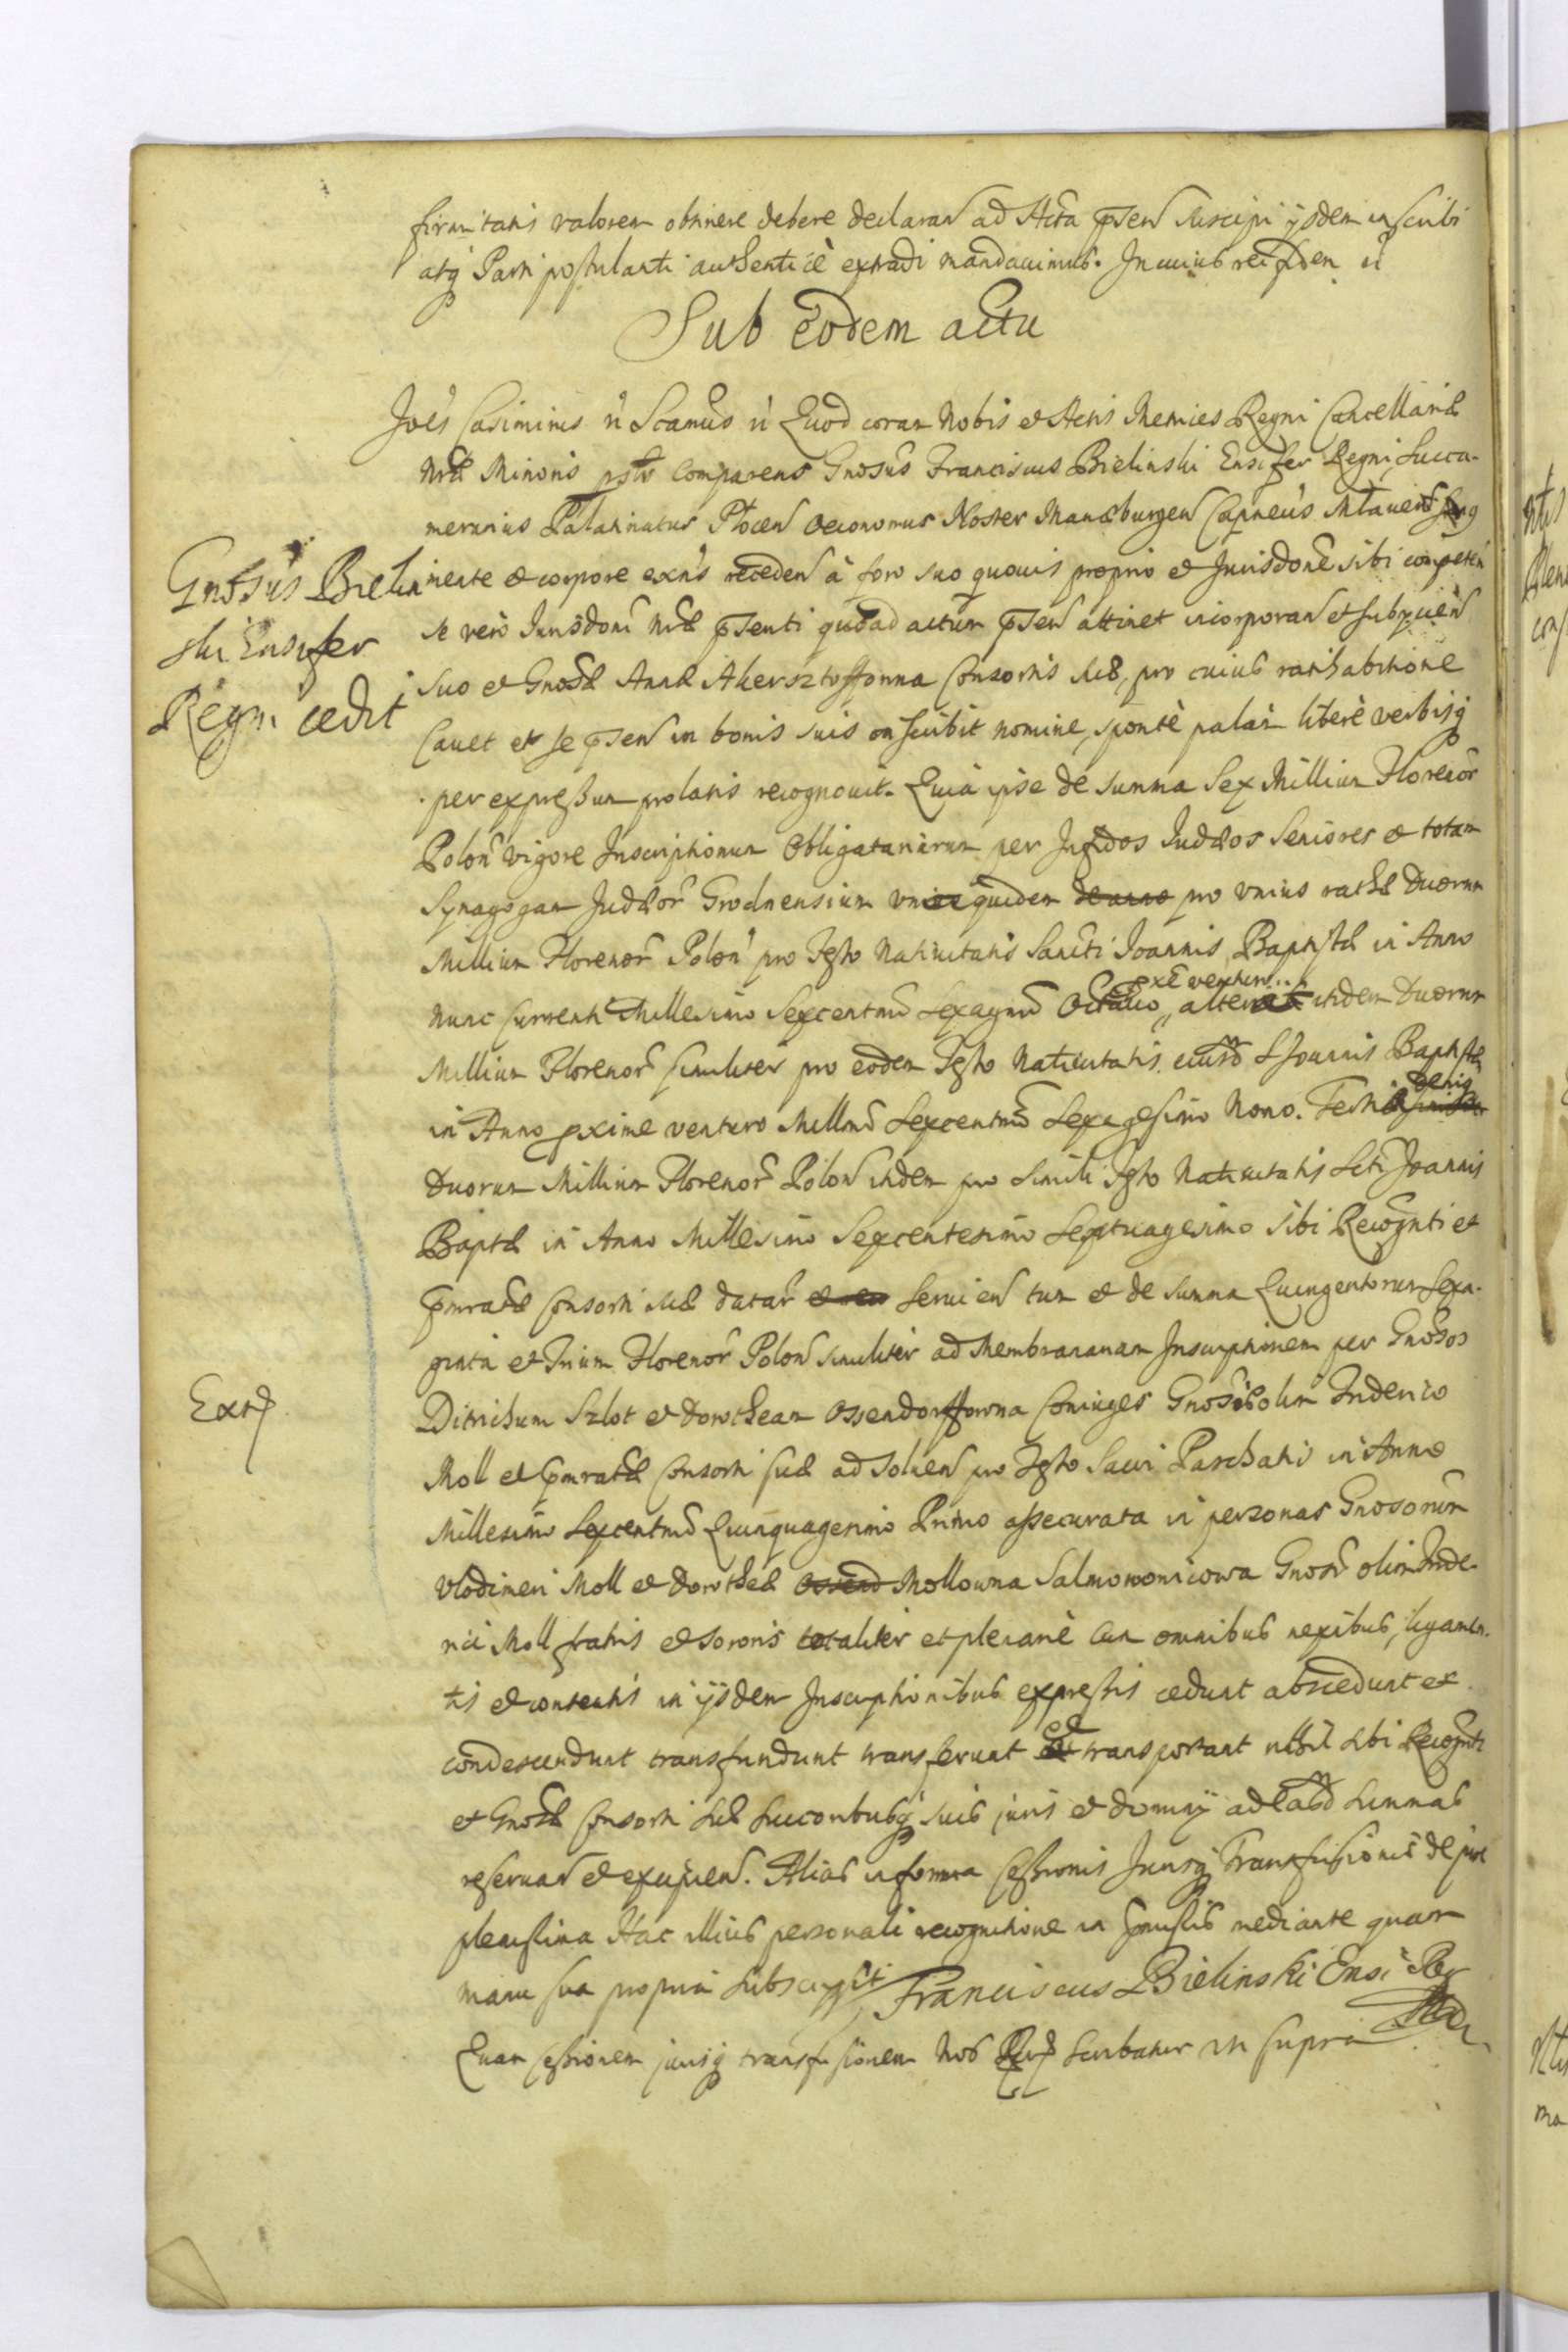 firmitatis valorem obtinere debere declaran ad Acta pnsen suscipi ijsdem inscribi
atq Parti postulanti authentice extradi mandauimus. In cuius rei fidem ñ
Sub eodem actu
Joes Casimirus ñ Scamus ñ Quod coram Nobis et Actis Metrices Regni Cancellariæ
Nræ Minoris psltr comparens Gnosus Franciscus Bielinski Ensifer Regni Succa-
merarius Palatinatus Plocen Oeconomus Noster Marieburgen Capneus Mlauen
mente et corpore exns receden à foro suo quouis proprio et Jurisdone sibi competen
se vero Jurisdoni Nræ pnsenti quoad actum pnsen attinet incorporan et subijcien
suo et Gnosæ Annæ Akersztoffowna Consortis suæ, pro cuius ratihabitione
Cauet et se pnsen in bonis suis inscribit nomine, sponte palam libere verbisq
per expressum prolatis recognouit. Quia ipse de summa Sex Millium Florenor
Polon vigore Inscriptionum Obligatoriarum per Infidos Judæos Seniores et totam
Synagogam Judæor Grodnensium vnius quidem de anno pro vnius rathæ Duorum
Millium Florenor Polon pro Fsto Natiuitatis Sancti Joannis Baptistæ in Anno
pxe ventur
nunc currenti Millesimo Sexcentmo Sexagmo Octauo, alterius itidem Duorum
Millium Florenor similiter pro eodem Fsto Natiuitatis eiusd S Joannis Baptistæ
deniq
in Anno pxime venturo Millmo Sexcentmo Sexagesimo Nono. Tertiæ similiter
Duorum Millium Florenor Polon itidem pro simili Fsto Natiuitatis Scti Joannis
Baptæ in Anno Millesimo Sexcentesimo Septuagesimo sibi Recognti et
pmratæ Consorti suæ datar seruien tum et de summa Quingentorum Sexa-
ginta et Trium Florenor Polon similiter ad Membranam Inscriptionem per Gnosos
Ditrichum Szlot et Dorotheam Ossendorffowna Coniuges Gnosis olim Friderico
Moll et pmratæ Consorti suæ ad soluen pro Fsto Sacri Paschatis in Anno
Millesimo Sexcentmo Quinquagesimo Primo assecurata in personas Gnosorum
Vlodimeri Moll et Dorotheæ Ossend Mollowna Salmonowicowa Gnosi olim Fride-
rici Moll fratris et sororis totaliter et plenarie cum omnibus nexibus, ligamen-
tis et contentis in ijsdem Inscriptionibus expressis cedunt abscedunt et
et
condescendunt transfundunt transferunt et transportant nihil sibi Recognti
et Gnosæ Consorti suæ Succoribusq suis juris et dominij ad easd summas
reseruan et excipien. Alias in forma Cessionis Jurisq Transfusionis de jure
plenissima Hac illius personali recognitione in pmissis mediante quam
manu sua propria subscripsit. Franciscus Bielinski Ensi: Reg
Quam Cessionem jurisq transfusionem Nos Rex scribatur vt supra
Gnosus Bielin
ski Ensifer
Regni cedit
Extr